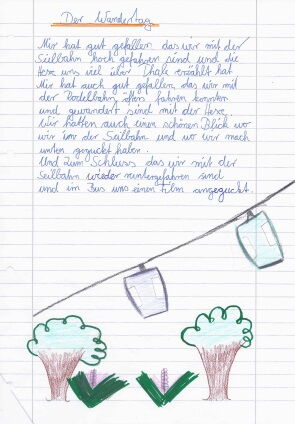 Der Wandertag
Mir hat gut gefallen das wir mit der
Seilbahn hoch gefahren sind und die
Hexe uns viel über Thale erzählt hat
Mir hat auch gut gefallen das wir mit
der Bodelbahn öffters fahren konnten
und gewandert sind mit der Hexe.
Wir hatten auch einen schönen Blick wo
wir in der Seilbahn und wo wir nach
unten geguckt haben.
Und zum Schluss das wir mit der
Seilbahn wieder runtergefahren sind
und im Bus uns einen Film angeguckt.